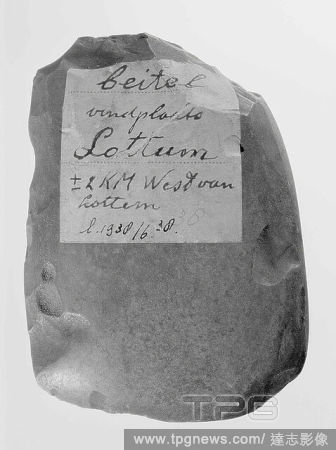 beitel
vindplaats
Lottum
± 2 KM West van
Lottem
l. 1938/6.38.
TPG
www.tpgnews.com/達志影像